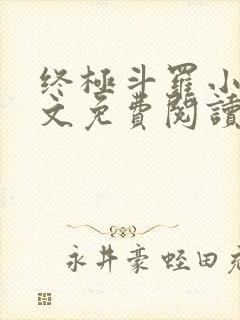 终極斗羅小
文免費閱讀
永井豪蛭田充